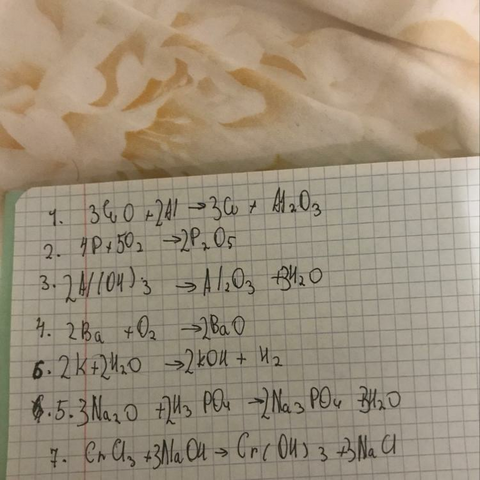 1. 3CuO + 2Al → 3Cu + Al₂O₃
2. 4P + 5O₂ → 2P₂O₅
3. 2Al(OH)₃ → Al₂O₃ + 3H₂O
4. 2Ba + O₂ → 2BaO
6. 2K + 2H₂O → 2KOH + H₂
5. 3Na₂O + 2H₃PO₄ → 2Na₃PO₄ + 3H₂O
7. CrCl₃ + 3NaOH → Cr(OH)₃ + 3NaCl